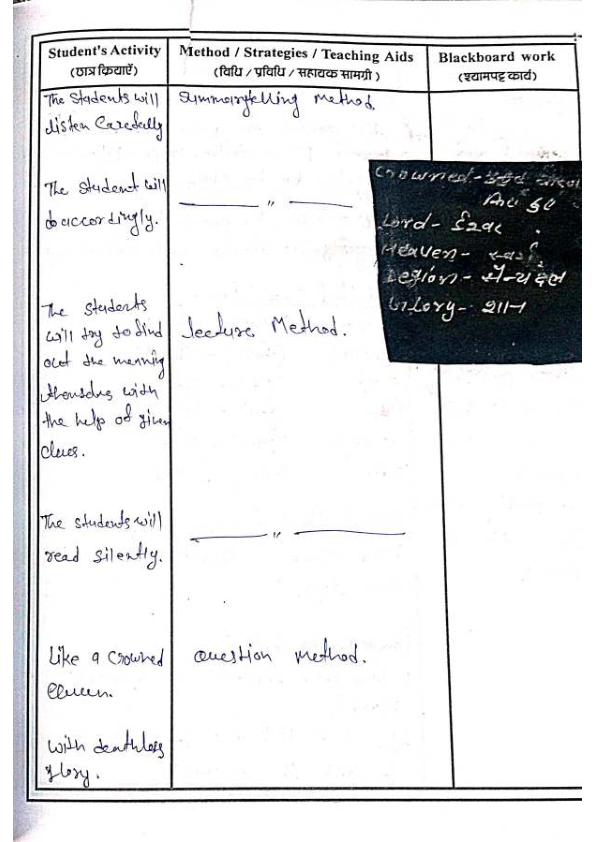 Student's Activity
(छात्र क्रियाएँ)
Method / Strategies / Teaching Aids
(विधि / प्रविधि / सहायक सामग्री)
Blackboard work
(श्यामपट्ट कार्य)
The Students will
listen Carefully
Summarytelling Method.
The Student will
do accordingly.
— " —
Crowned-
Lord- ईश्वर
Heaven- स्वर्ग
Legion- सैन्यदल
Glory- शान
The students
will try to find
out the meaning
with
the help of given
clues.
lecture Method.
The students will
read silently.
— " —
Like a Crowned
Queen.
Question method.
with deathless
glory.